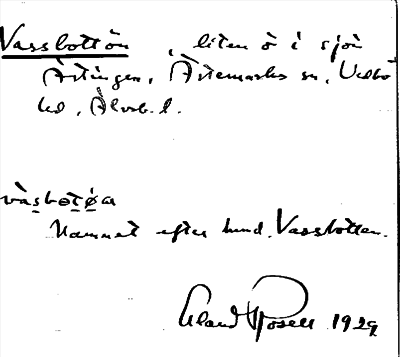 Vassbottön, liten ö i sjön
Ärtingen, Ärtemarks sn, Vedbo
hd, Älvsb. l.
Namnet efter hmd. Vassbotten.
Erland Rosell 1929